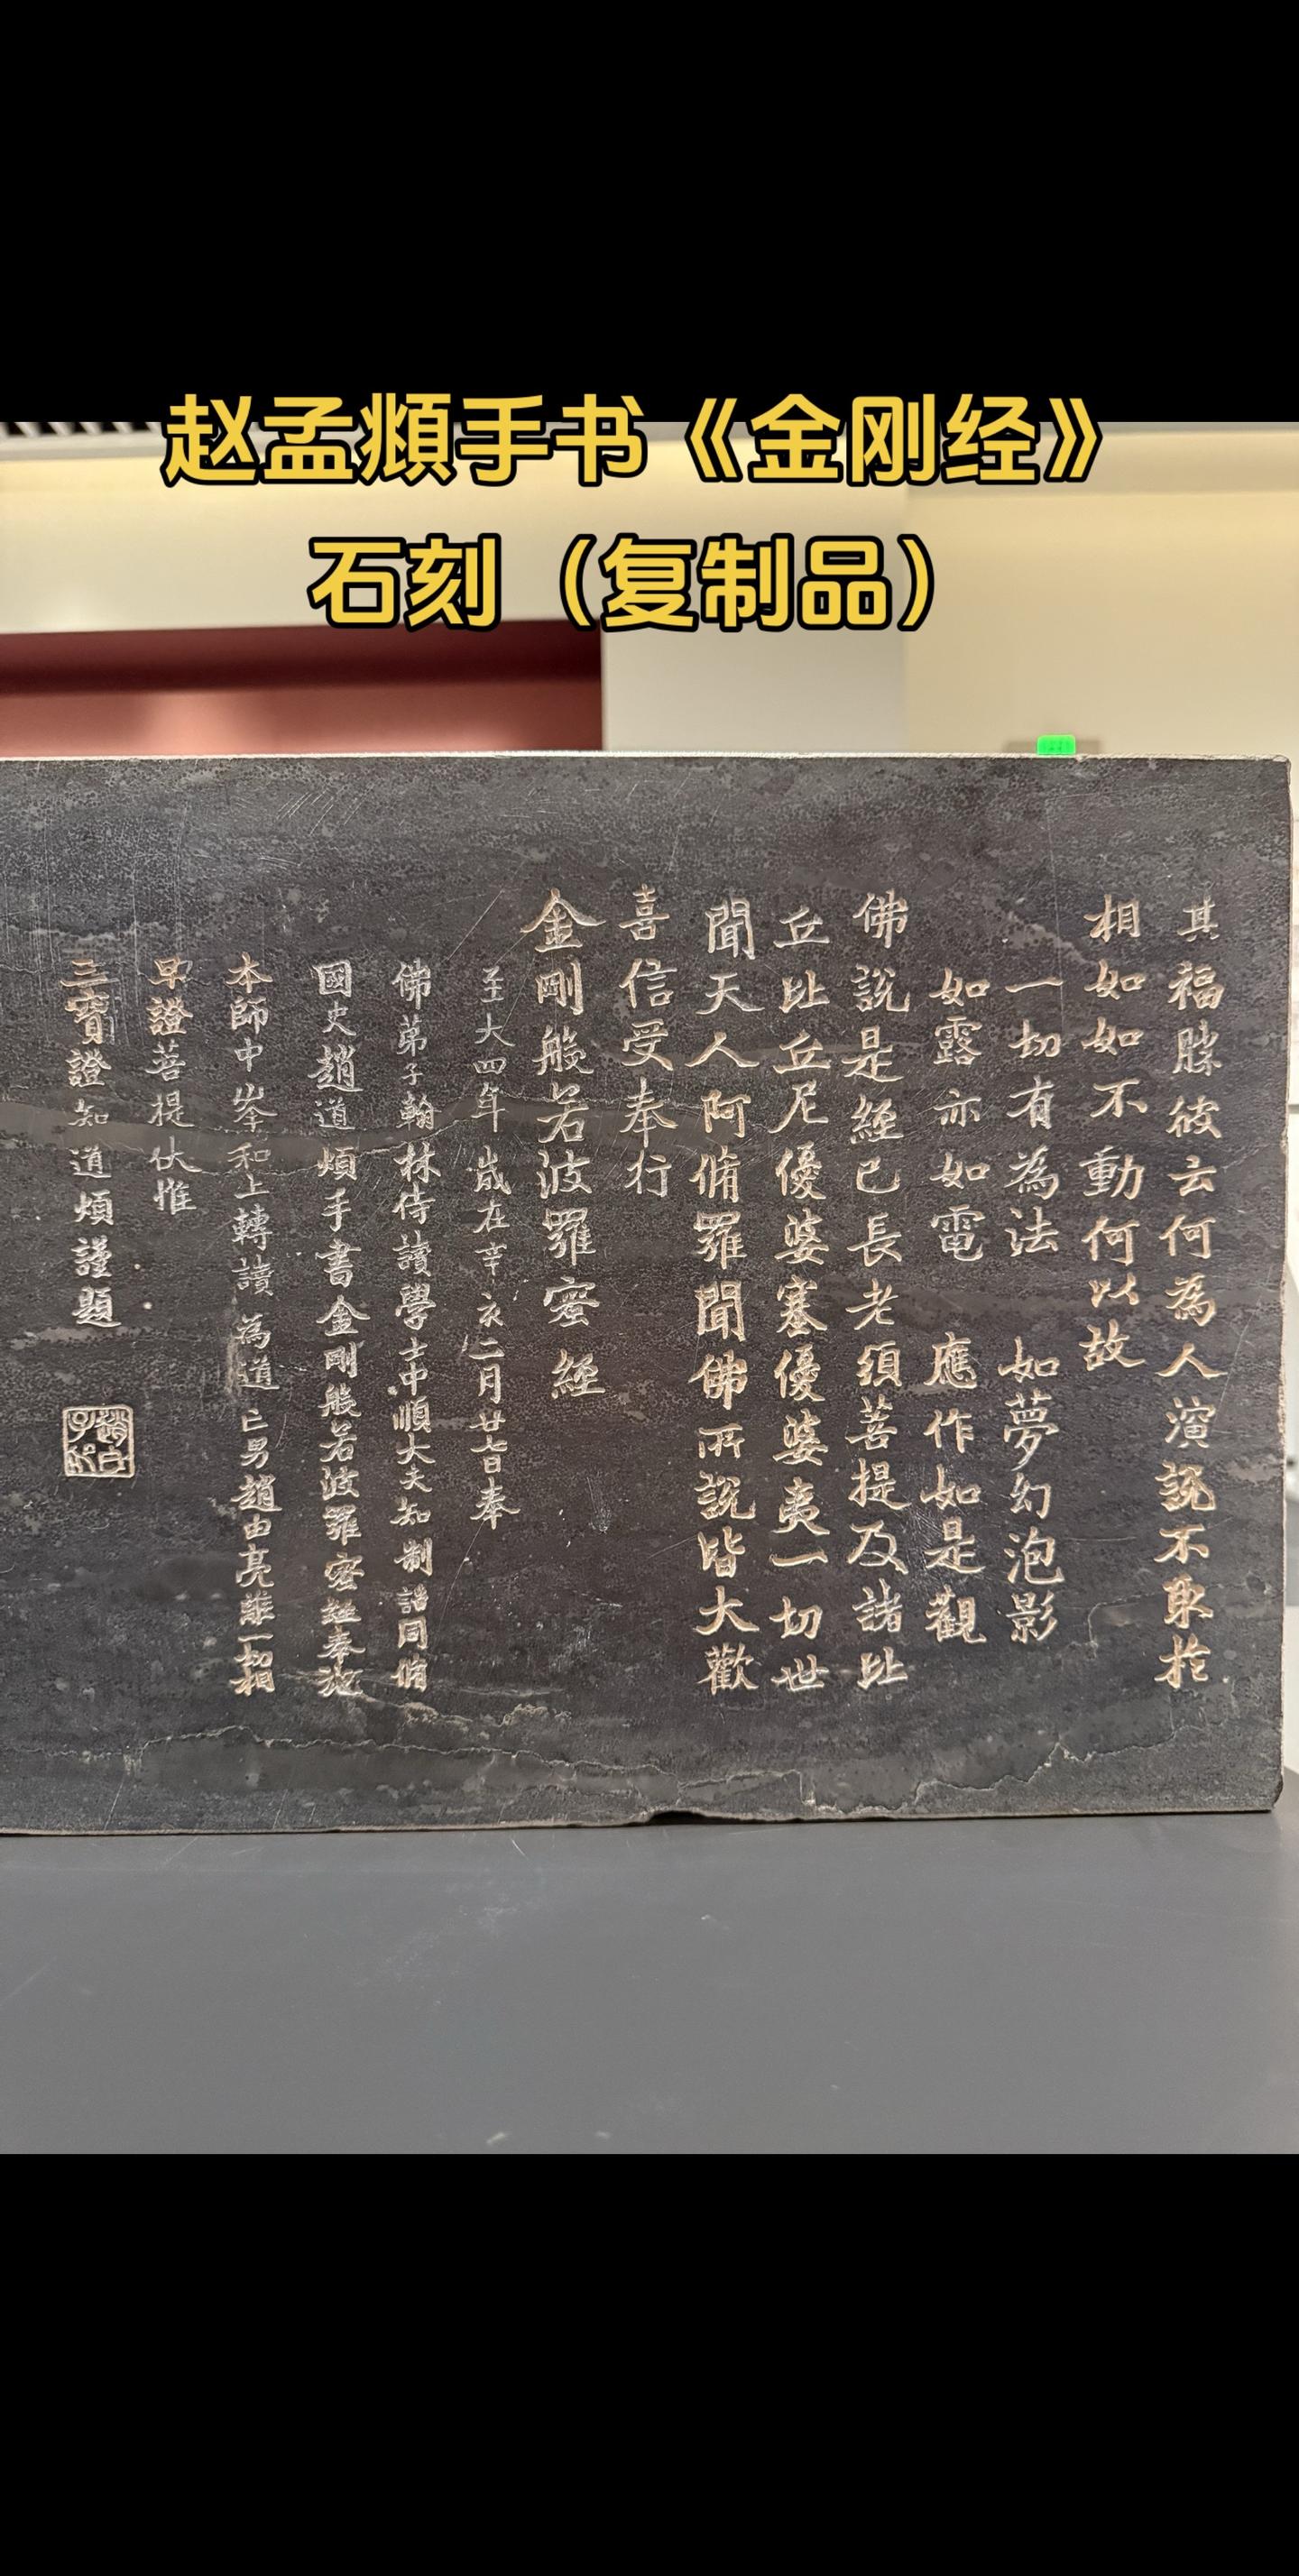 赵孟頫手书《金刚经》
石刻（复制品）
其福勝彼云何為人演説不取於
相如如不動何以故
一切有為法 如夢幻泡影
如露亦如電 應作如是觀
佛說是經已長老須菩提及諸比
丘比丘尼優婆塞優婆夷一切世
間天人阿脩羅聞佛所説皆大歡
喜信受奉行
金剛般若波羅蜜經
至大四年歲在辛亥二月廿七日奉
佛弟子翰林侍讀學士中順大夫知制誥同脩
國史趙道頫手書金剛般若波羅蜜經奉施
本師中峯和上轉讀為道亡男趙由亮離一切相
早證菩提伏惟
三寶證知道頫謹題
趙氏子昂